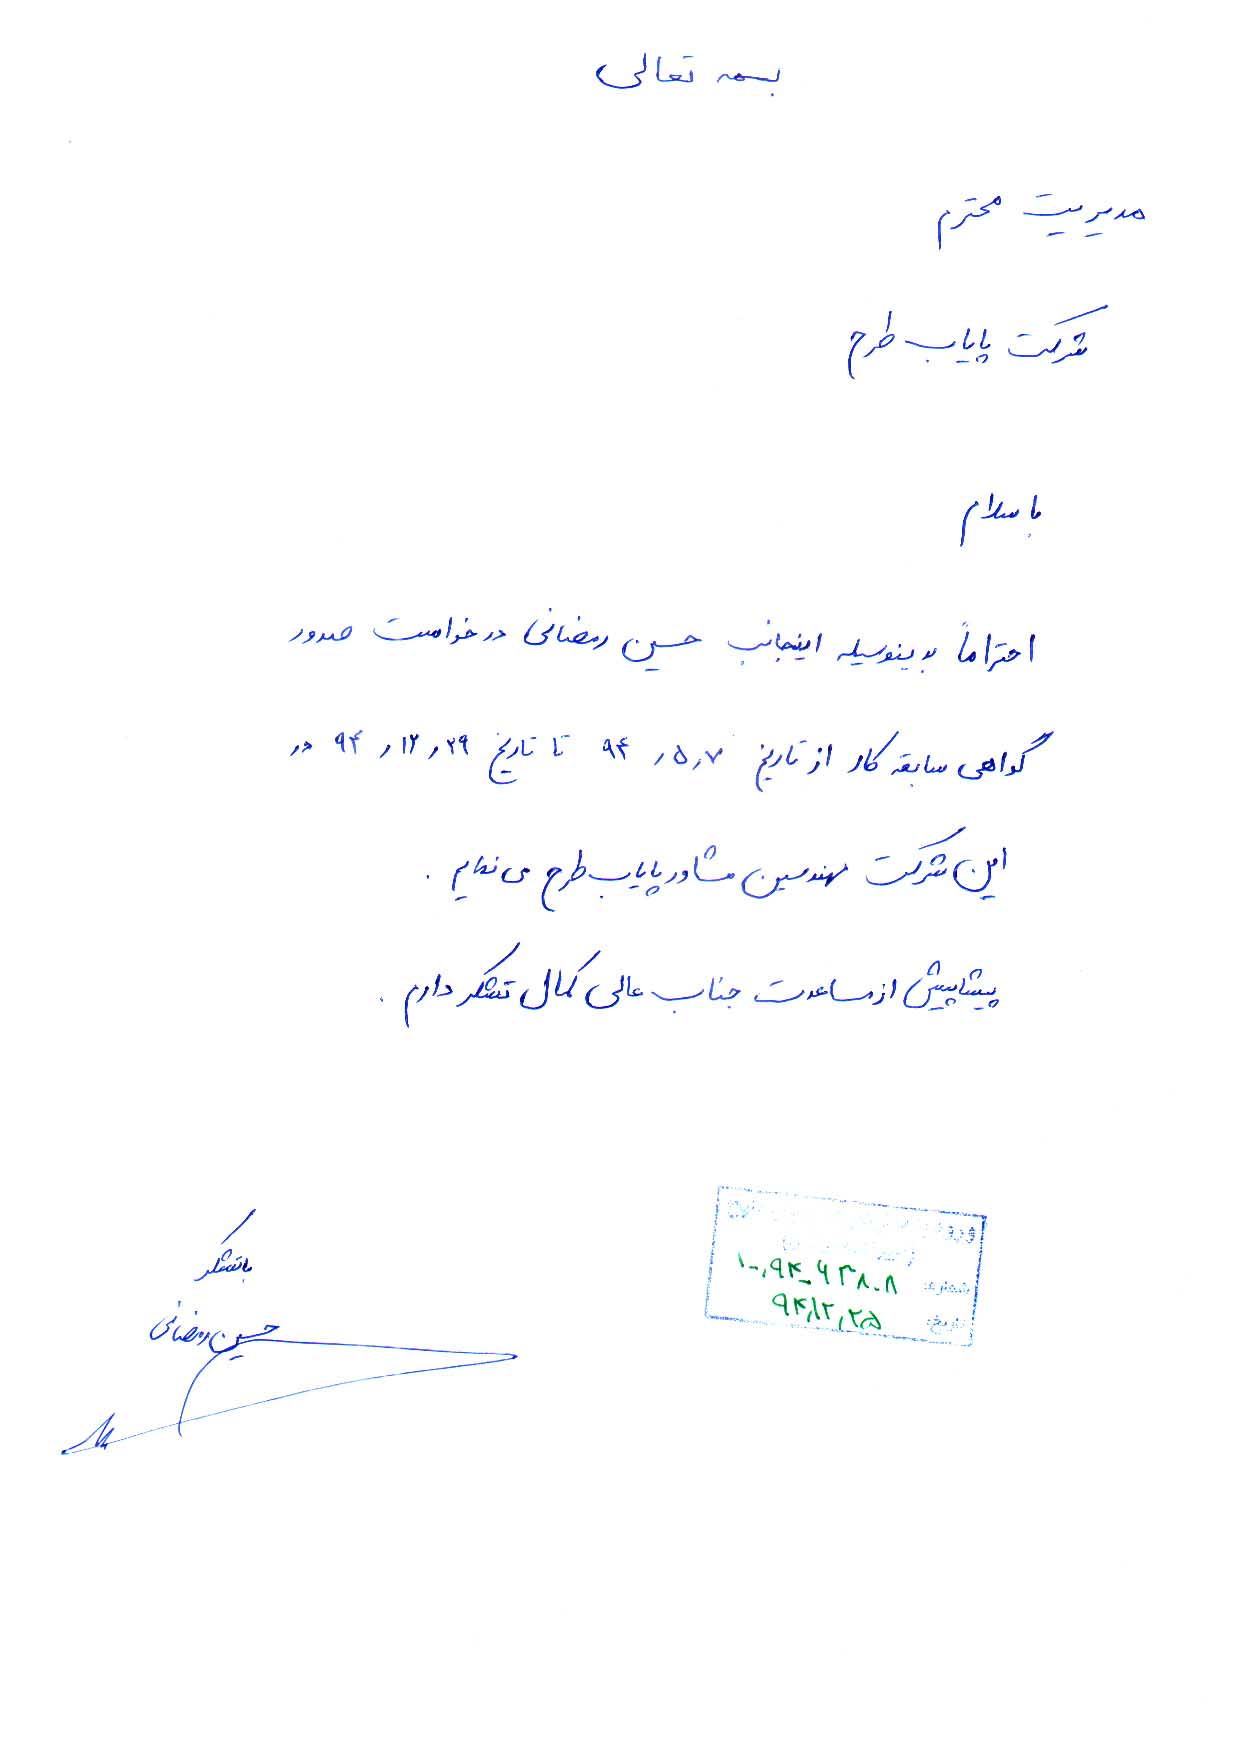 بسمه تعالی
مدیریت محترم
شرکت پایاب طرح
با سلام
احتراماً بدینوسیله اینجانب حسین رمضانی درخواست صدور
گواهی سابقه کار از تاریخ ۹۴٫۵٫۷ تا تاریخ ۹۴٫۱۲٫۲۹ در
این شرکت مهندسین مشاور پایاب طرح می نمایم .
پیشاپیش از مساعدت جناب عالی کمال تشکر دارم .
شماره:
تاریخ: ۹۴٫۱۲٫۲۵
باتشکر
حسین رمضانی